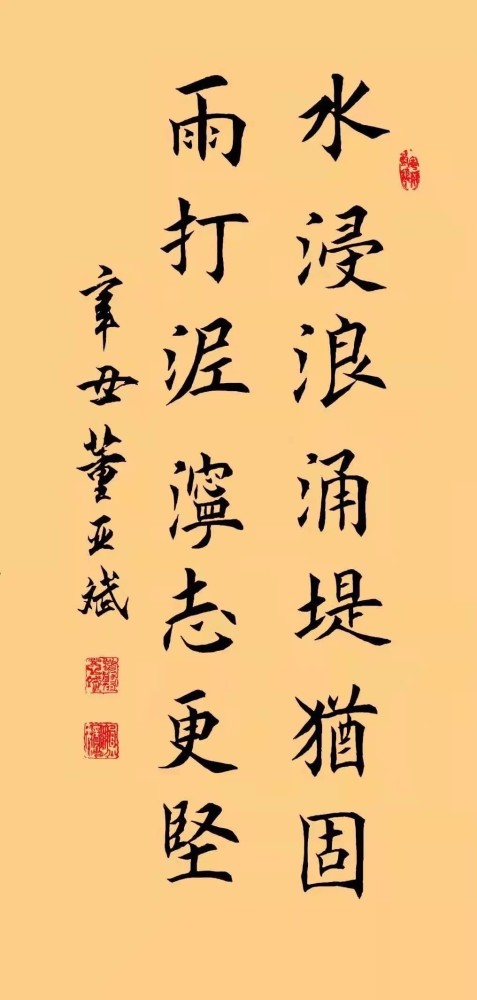 水浸浪涌堤猶固
雨打泥濘志更堅
辛丑董亚斌